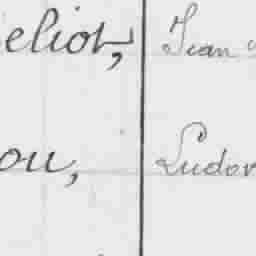 eliot, Jean
ou, Ludov